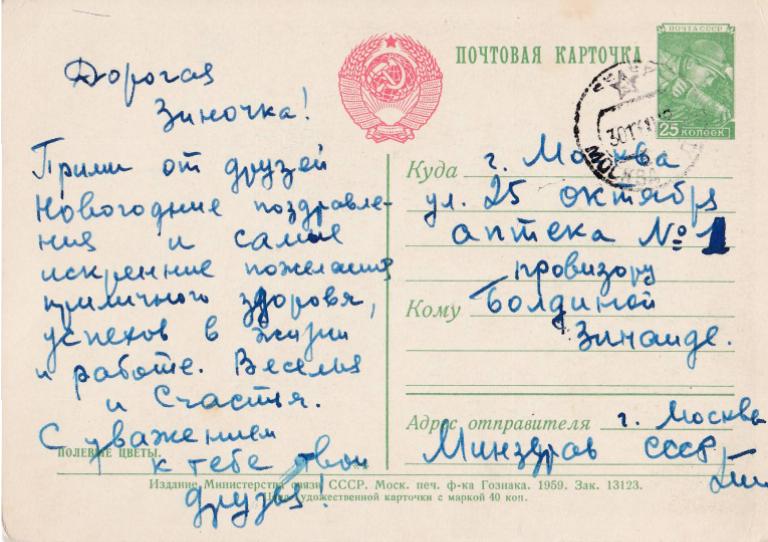 Дорогая
Зиночка!
Прими от друзей
Новогодние поздравле-
ния и самые
искренние пожелания
приличного здоровя,
успехов в жизни
и работе. Веселья
и Счастья.
С уважением
к тебе твои
друзья!
ПОЛЕВЫЕ ЦВЕТЫ.
ПОЧТОВАЯ КАРТОЧКА
ПОЧТА СССР
25 КОПЕЕК
МОСКВА
Куда г. Москва
ул. 25 октября
аптека № 1
провизору
Кому Болдиной
Зинаиде.
Адрес отправителя г. Москва
Минздрав СССР
Издание Министерства связи СССР. Моск. печ. ф-ка Гознака. 1959. Зак. 13123.
Цена художественной карточки с маркой 40 коп.